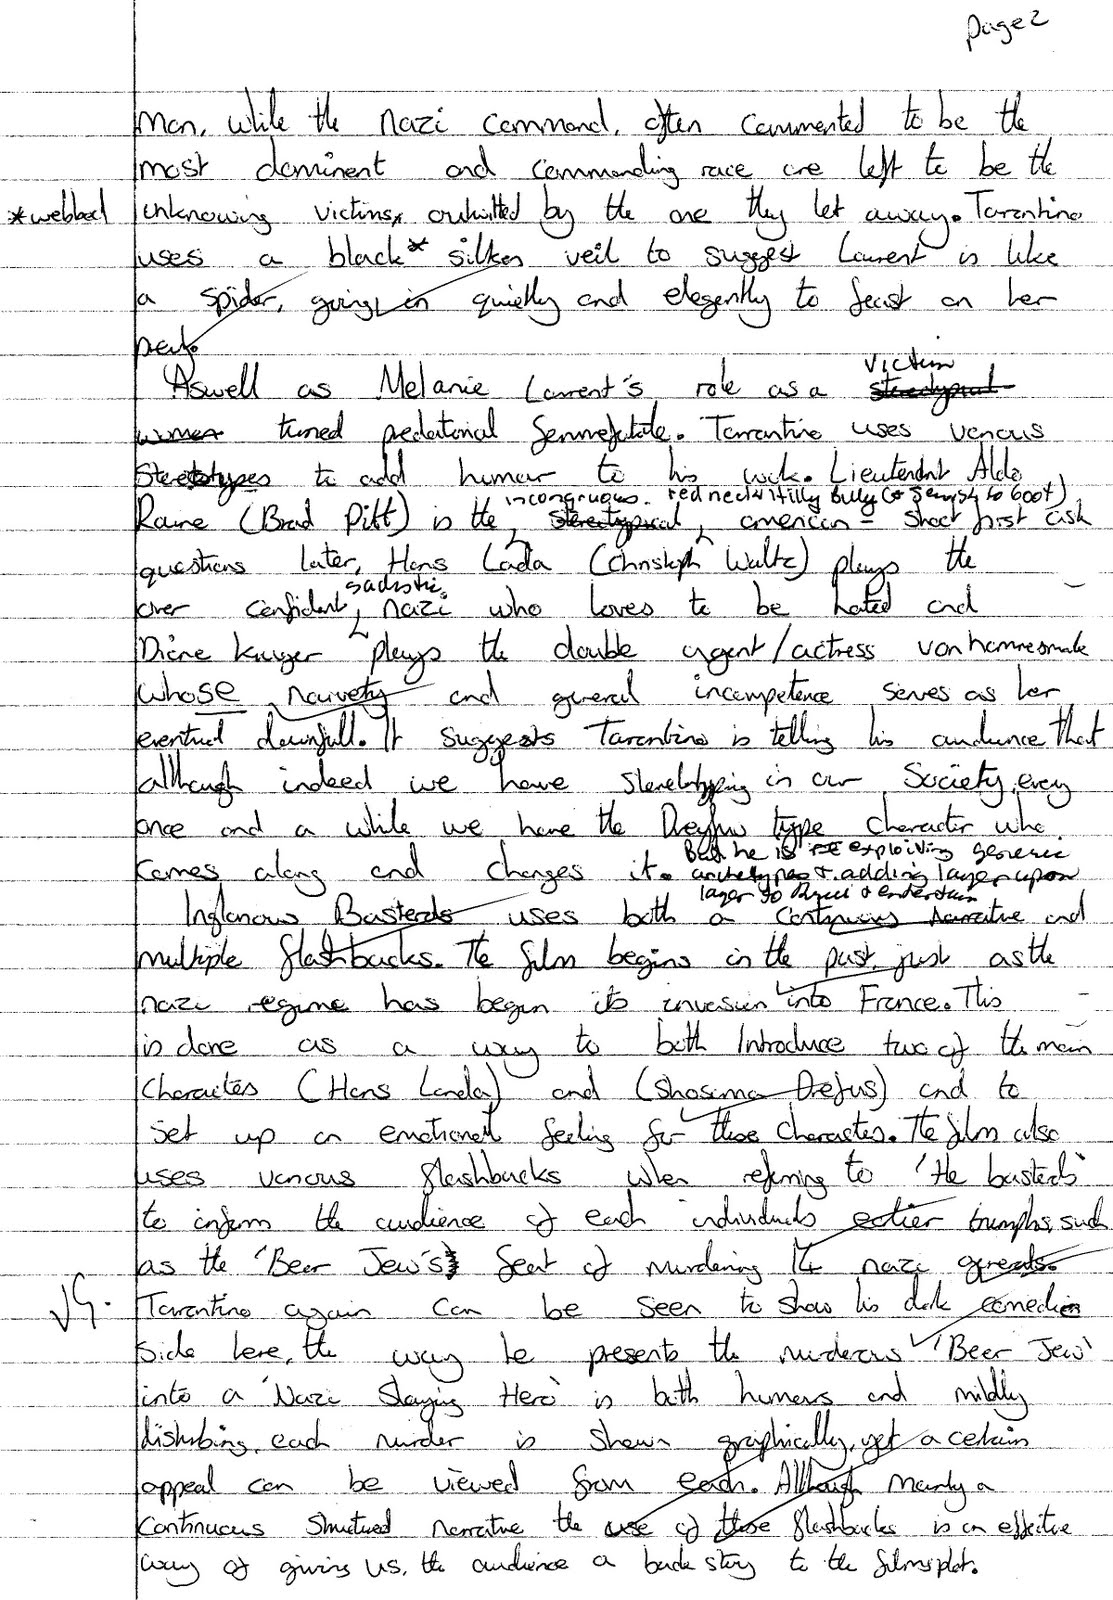 Page 2
Man, while the Nazi Command, often commented to be the
most dominent and commanding race are left to be the
*webbed
unknowing victims, outwitted by the one they let away. Tarantino
uses a black* silken veil to suggest Laurent is like
a spider, going in quietly and elegently to feast on her
prey.
Aswell as Melanie Laurent's role as a victim stereotypical
women turned predatorial femmefatale. Tarrantino uses various
Stereotypes to add humor to his work. Lieutendant Aldo
incongruous. redneck hilly billy (& Jewish to boot)
Raine (Brad Pitt) is the stereotypical, american - shoot first ask
questions later, Hans Lada (Christoph Waltz) plays the
sadistic
over confident, nazi who loves to be hated and
Diane Kruger plays the double agent/actress vonhammesmark
whose naivety and general incompetence serves as her
eventual downfall. It suggests Tarantino is telling his audience that
although indeed we have stereotyping in our Society, every
once and a while we have the Dreyfus type character who
Comes along and changes it.
But he is exploiting generic
archetypes & adding layer upon
layer to & entertain
Inglarious Basterds uses both a continuous narrative and
multiple flashbacks. The film begins in the past, just as the
nazi regime has began its invasion into France. This
is done as a way to both Introduce two of the main
Characters (Hans Landa) and (Shosanna Drefus) and to
set up an emotional feeling for those characters. The film also
uses various flashbacks when referring to 'the basterds'
to inform the audience of each individuals earlier triumphs, such
as the 'Beer Jew's' feat of murdering 14 nazi generals.
VG.
Tarantino again can be seen to show his dark comedic
side here, the way he presents the murderous 'Beer Jew'
into a 'Nazi Slaying Hero' is both humers and mildly
disturbing, each murder is shown graphically, yet a certain
appeal can be viewed from each. Although mainly a
Continuous structured narrative the use of those flashbacks is an effective
way of giving us, the audience a back story to the films plot.